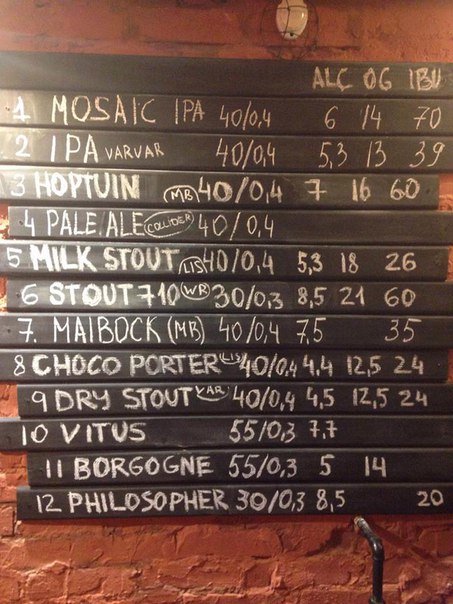 ALC OG IBU
1 MOSAIC IPA 40/0,4 6 14 70
2 IPA VARVAR 40/0,4 5,3 13 39
3 HOPTUIN (MB) 40/0,4 7 16 60
4 PALE ALE COLLIDER 40/0,4
5 MILK STOUT LIS 40/0,4 5,3 18 26
6 STOUT 710 WR 30/0,3 8,5 21 60
7. MAIBOCK (MB) 40/0,4 7,5 35
8 CHOCO PORTER LIS 40/0,4 4,4 12,5 24
9 DRY STOUT VAR 40/0,4 4,5 12,5 24
10 VITUS 55/0,3 7,7
11 BORGOGNE 55/0,3 5 14
12 PHILOSOPHER 30/0,3 8,5 20